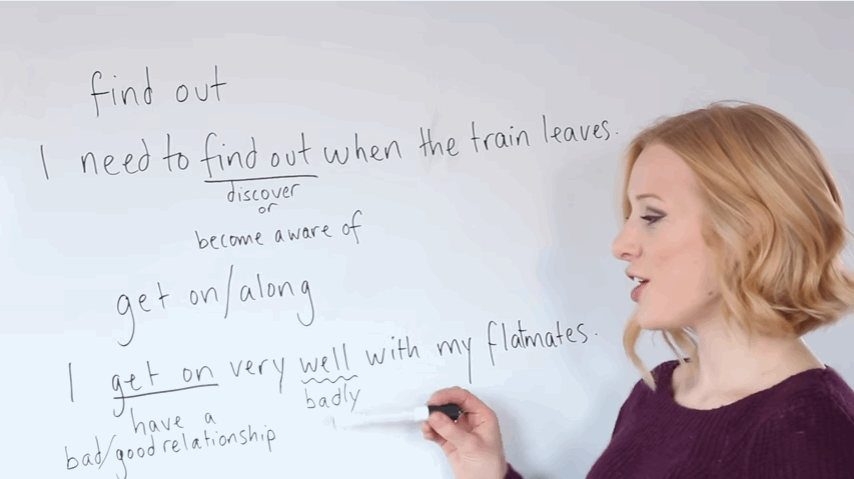 find out
I need to find out when the train leaves.
discover
or
become aware of
get on/along
I get on very well with my flatmates.
badly
have a
bad/good relationship